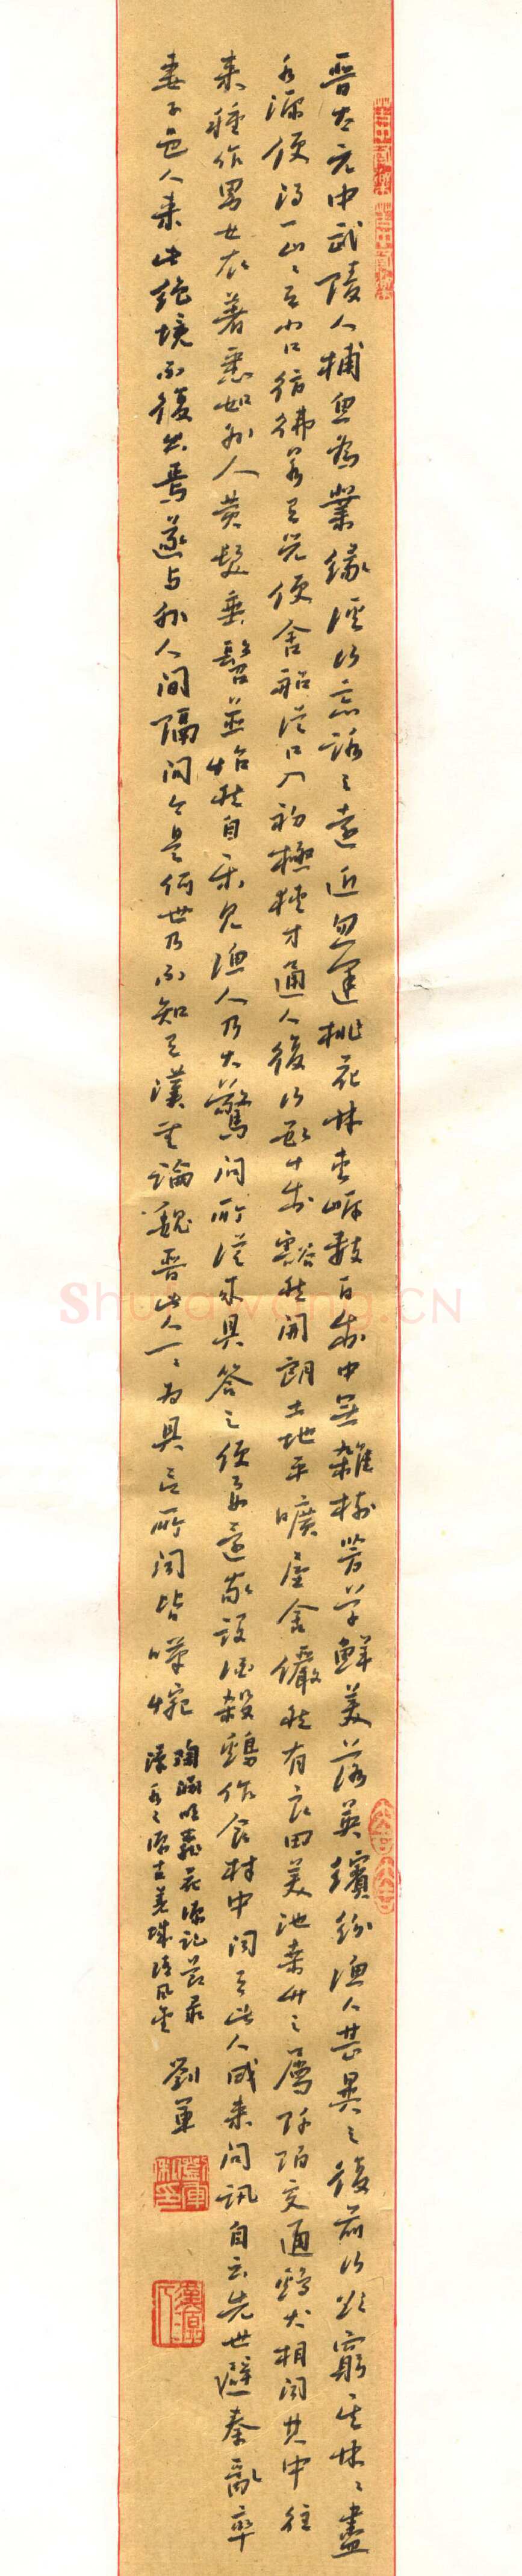 晋太元中武陵人捕鱼为業缘溪行忘路之遠近忽逢桃花林夹岸数百步中無雜樹芳草鮮美落英繽紛渔人甚異之復前行欲窮其林林盡
水源便得一山山有小口彷彿若有光便舍船從口入初極狭才通人復行数十步豁然開朗土地平曠屋舍儼然有良田美池桑竹之屬阡陌交通鷄犬相闻其中往
来種作男女衣著悉如外人黄髮垂髫並怡然自乐見渔人乃大驚问所從来具答之便要還家設酒殺鷄作食村中闻有此人咸来问訊自云先世避秦亂率
妻子邑人来此絶境不復出焉遂与外人间隔问今是何世乃不知有漢無論魏晋此人一一为具言所闻皆嘆惋
陶淵明桃花源記節录
清風堂
劉軍
Shufawang.CN